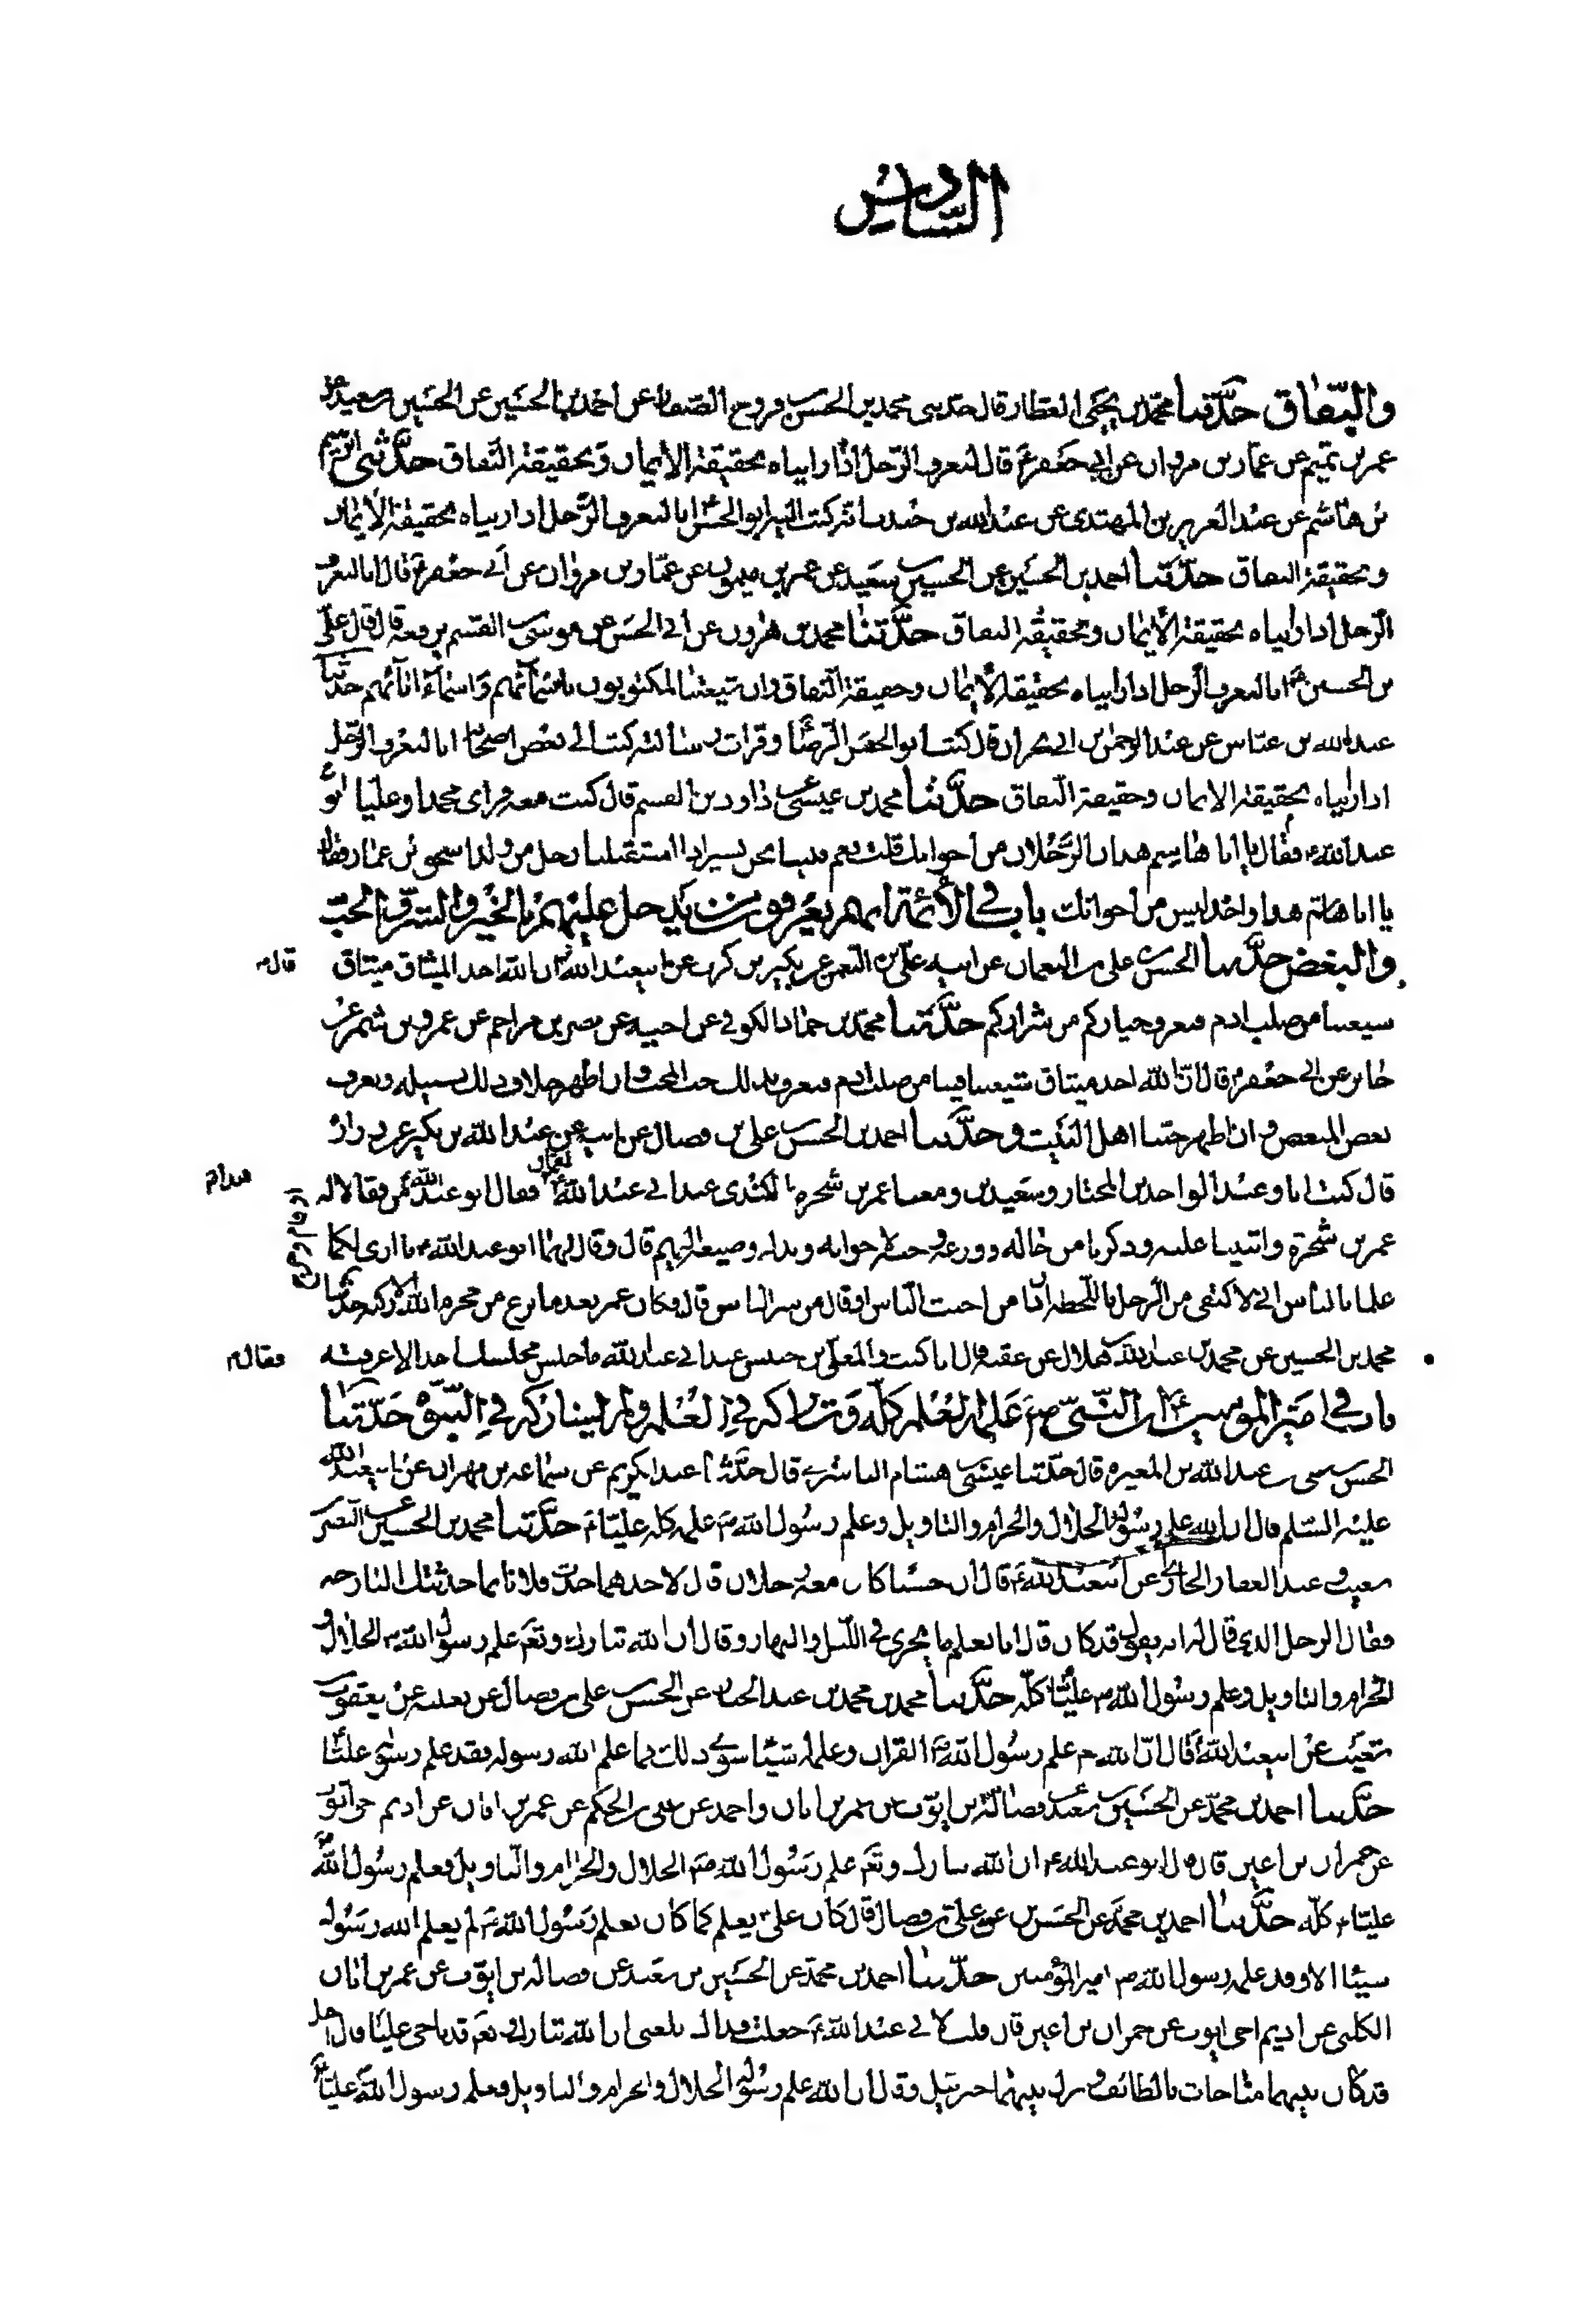 السادس
والنفاق حدثنا محمد بن يحيى العطار قال حدثني محمد بن الحسن بن فروخ الصفار عن احمد بن الحسين عن الحسين بن سعيد عن
عمر بن تميم عن عمار بن مروان عن ابي جعفر ع قال انا لنعرف الرجل اذا رايناه بحقيقة الايمان وبحقيقة النفاق حدثني ابرهيم
بن هاشم عن عبد العزيز بن المهتدي عن عبد الله بن جندب انه كتب اليه ابو الحسن ع انا لنعرف الرجل اذا رايناه بحقيقة الايمان
وبحقيقة النفاق حدثنا احمد بن الحسين عن الحسين بن سعيد عن عمر بن ميمون عن عمار بن مروان عن ابي جعفر ع قال انا لنعرف
الرجل اذا رايناه بحقيقة الايمان وبحقيقة النفاق حدثنا محمد بن هرون عن ابي الحسن عن موسى بن القسم يرفعه قال قال علي
بن الحسين ع انا لنعرف الرجل اذا رايناه بحقيقة الايمان وحقيقة النفاق وان شيعتنا لمكتوبون باسمائهم واسماء ابائهم حدثنا
عبد الله بن عباس عن عبد الرحمن بن ابي نجران قال كتب ابو الحسن الرضا ع وقرات رسالته كتب الى بعض اصحابه انا لنعرف الرجل
اذا رايناه بحقيقة الايمان وحقيقة النفاق حدثنا محمد بن عيسى عن داود بن القسم قال كنت معه فراى محمدا وعليا ابو
عبد الله ع فقال يا ابا هاشم هذان الرجلان من اخوانك قلت نعم فبينا نحن نسير اذا استقبلنا رجل من ولد اسحق بن عمار فقال
يا ابا هاشم هذا واحد ليس من اخوانك باب في الائمة انهم يعرفون من يدخل عليهم بالخير والشر والحب
والبغض حدثنا الحسن بن علي بن النعمان عن ابيه علي بن النعمن عن بكير بن كرب عن ابي عبد الله ع ان الله اخذ الميثاق ميثاق
قال
شيعتنا من صلب ادم فنعرف خياركم من شراركم حدثنا محمد بن حماد الكوفي عن اخيه عن نصر بن مزاحم عن عمرو بن شمر عن
جابر عن ابي جعفر ع قال ان الله اخذ ميثاق شيعتنا فينا من صلب ادم فنعرف بذلك حب المحب وان اظهر خلاف ذلك بلسانه ونعرف
بغض المبغض وان اظهر حبنا اهل البيت و حدثنا احمد بن الحسن بن علي بن فضال عن ابيه عن عبد الله بن بكير عن زرارة
قال كنت انا وعبد الواحد بن المختار وسعيد بن ومعنا عمر بن شجرة الكندي عند ابي عبد الله ع فقام فقال ابو عبد الله ع من فقالا له
عمر بن شجرة واثنينا عليه وذكرنا من حاله وورعه وحبه لاخوانه وبذله وصنيعه اليهم قال وقال لهما ابو عبد الله ع ما ارى لكما
علما بالناس اني لاكتفي من الرجل باللحظة ان ذا من اخبث الناس او قال من شر الناس قال فكان عمر بعد ما نزع من محرم الله الا ركبه حدثنا
محمد بن الحسين عن محمد بن عبد الله بن هلال عن عقبة قال انا كنت والمعلى بن خنيس عند ابي عبد الله ع ما جلس مجلسنا احد الا عرفته
فقال
باب في امير المؤمنين ع ان النبي ص علمه العلم كله وشاركه في العلم ولم يشاركه في النبوة حدثنا
الحسن بن علي بن عبد الله بن المغيرة قال حدثنا عبيس بن هشام الناشري قال حدثنا عبد الكريم عن سماعة بن مهران عن ابي عبد الله
عليه السلم قال ان الله علم رسوله الحلال والحرام والتاويل وعلم رسول الله ص علمه كله عليا ع حدثنا محمد بن الحسين عن النضر
بن شعيب عن عبد الغفار الجازي عن ابي عبد الله ع قال ان حسنا كان معه رجلان قال لاحدهما حدث فلانا بما حدثتك البارحة
فقال الرجل الذي قال له انه يقول قد كان قال انا نعلم ما يجري في الليل والنهار وقال ان الله تبارك وتع علم رسول الله ص الحلال و
الحرام والتاويل وعلم رسول الله ص عليا كله حدثنا محمد بن محمد بن عبد الجبار عن الحسن بن علي بن فضال عن ثعلبة عن يعقوب بن
شعيب عن ابي عبد الله ع قال ان الله علم رسول الله ص القران وعلمه شيئا سوى ذلك فما علم الله رسوله فقد علم رسوله عليا
حدثنا احمد بن محمد عن الحسين بن سعيد عن فضالة بن ايوب عن عمر بن ابان واحمد عن علي بن الحكم عن عمر بن ابان عن اديم اخي ايوب
عن حمران بن اعين قال قال ابو عبد الله ع ان الله تبارك وتع علم رسول الله ص الحلال والحرام والتاويل فعلم رسول الله ص
عليا ع كله حدثنا احمد بن محمد عن الحسن بن علي بن فضال قال كان علي ع يعلم كما كان يعلم رسول الله ص لم يعلم الله رسوله
شيئا الا وقد علمه رسول الله ص امير المؤمنين حدثنا احمد بن محمد عن الحسين بن سعيد عن فضاله بن ايوب عن عمر بن ابان
الكلبي عن اديم اخي ايوب عن حمران بن اعين قال قلت لابي عبد الله ع جعلت فداك بلغني ان الله تبارك و تعم قد ناجى عليا قال اجل
قد كان بينهما مناجات بالطائف نزل بينهما جبرئيل وقال ان الله علم رسوله الحلال والحرام والتاويل فعلم رسول الله ص عليا